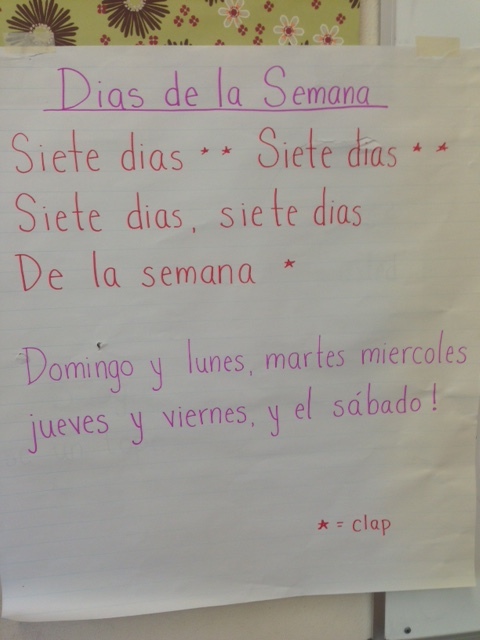 Dias de la Semana
Siete dias ** Siete dias **
Siete dias, siete dias
De la semana *
Domingo y lunes, martes miercoles
jueves y viernes, y el sábado!
* = clap